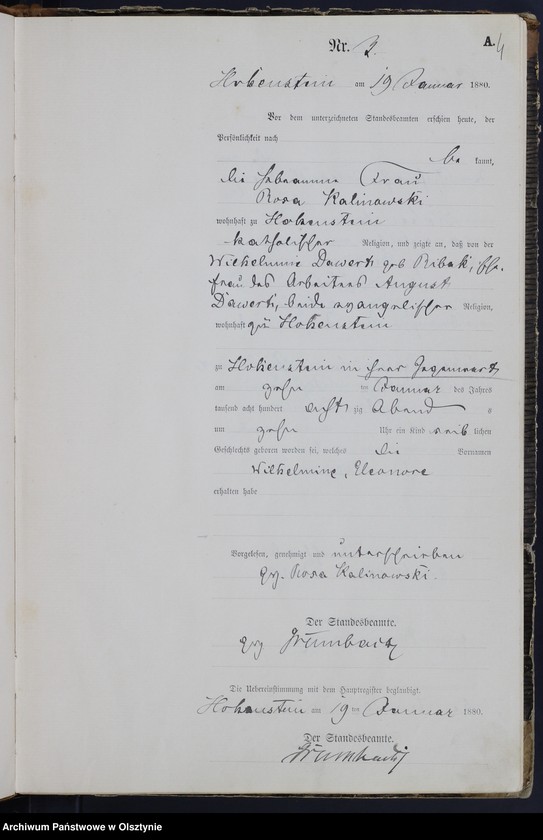 Nr. 3.
A. 4
Hohenstein am 19 Januar 1880.
Vor dem unterzeichneten Standesbeamten erschien heute, der
Persönlichkeit nach
be kannt,
die Hebeamme Frau
Rosa Kalinowski
wohnhaft zu Hohenstein
katholischer Religion, und zeigte an, daß von der
Wilhelmine Dawert geb Ribek, Ehe.
frau des Arbeiters August
Dawert, beide evangelischer Religion,
wohnhaft zu Hohenstein
zu Hohenstein in ihrer Gegenwart
am zehn ten Januar des Jahres
tausend acht hundert acht zig Abend s
um zehn Uhr ein Kind weib lichen
Geschlechts geboren worden sei, welches die Vornamen
Wilhelmine, Eleonore
erhalten habe
Vorgelesen, genehmigt und unterschrieben
gez. Rosa Kalinowski.
Der Standesbeamte.
gez
Die Uebereinstimmung mit dem Hauptregister beglaubigt.
Hohenstein am 19 ten Januar 1880.
Der Standesbeamte.
Archiwum Państwowe w Olsztynie